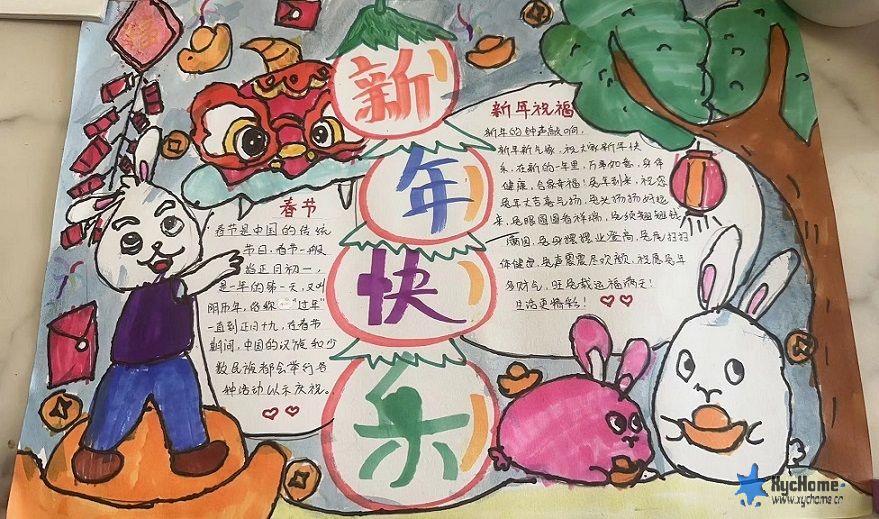 新
年
快
乐
春节
春节是中国的传统
节日,春节一般
指正月初一,
是一年的第一天,又叫
阴历年,俗称"过年"
一直到正月十九,在春节
期间,中国的汉族和少
数民族都会举行各
种活动以示庆祝。
新年祝福
新年的钟声敲响,
新年新气象,祝大家新年快
乐,在新的一年里,万事如意,身体
健康,合家幸福!兔年到来,祝您
兔年大吉喜气扬,兔头扬扬好运
来,兔眼圆圆看祥瑞,兔须翘翘
满园,兔
体健康,兔声震震尽欢颜,祝愿兔年
多财气,旺兔载运福满天!
生活更精彩!
XycHome
www.xychome.cn